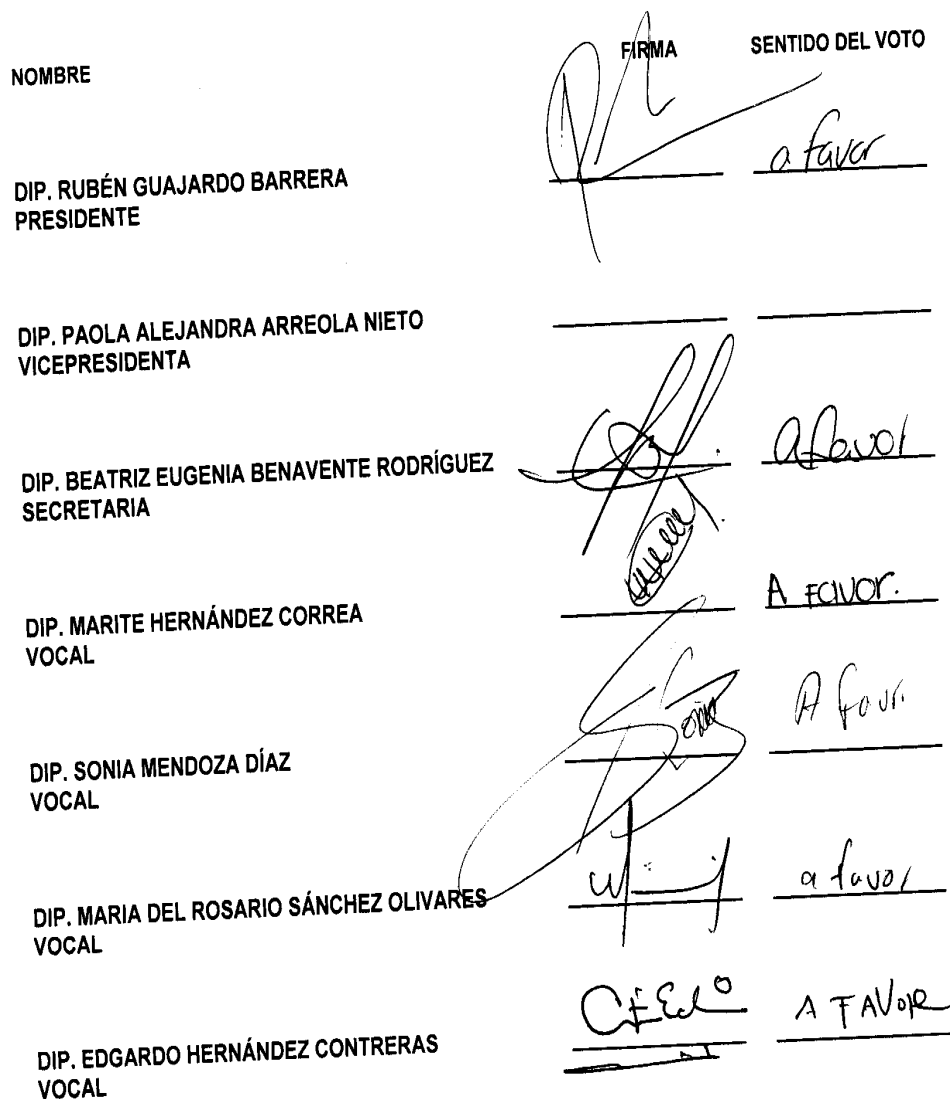 NOMBRE FIRMA SENTIDO DEL VOTO
a favor
DIP. RUBÉN GUAJARDO BARRERA
PRESIDENTE
DIP. PAOLA ALEJANDRA ARREOLA NIETO
VICEPRESIDENTA
DIP. BEATRIZ EUGENIA BENAVENTE RODRÍGUEZ a favor
SECRETARIA
A FAVOR.
DIP. MARITE HERNÁNDEZ CORREA
VOCAL
Sonia A favr.
DIP. SONIA MENDOZA DÍAZ
VOCAL
a favor
DIP. MARIA DEL ROSARIO SÁNCHEZ OLIVARES
VOCAL
A FAVOR
DIP. EDGARDO HERNÁNDEZ CONTRERAS
VOCAL